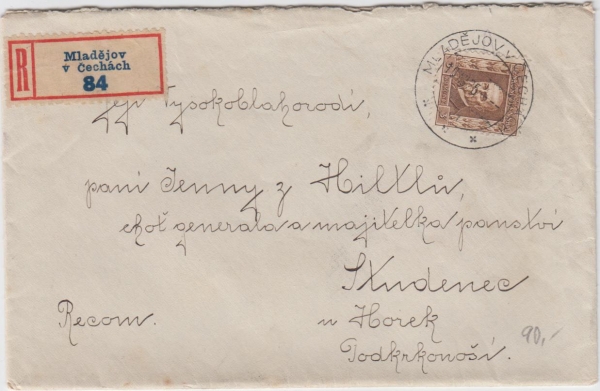 R
Mladějov
v Čechách
84
MLADĚJOV V ČECHÁCH
Její Vysokoblahorodí,
paní Jenny z Hiltlů,
choť generala a majitelka panství
Studenec
u Horek
Podkrkonoší.
Recom.
90,-